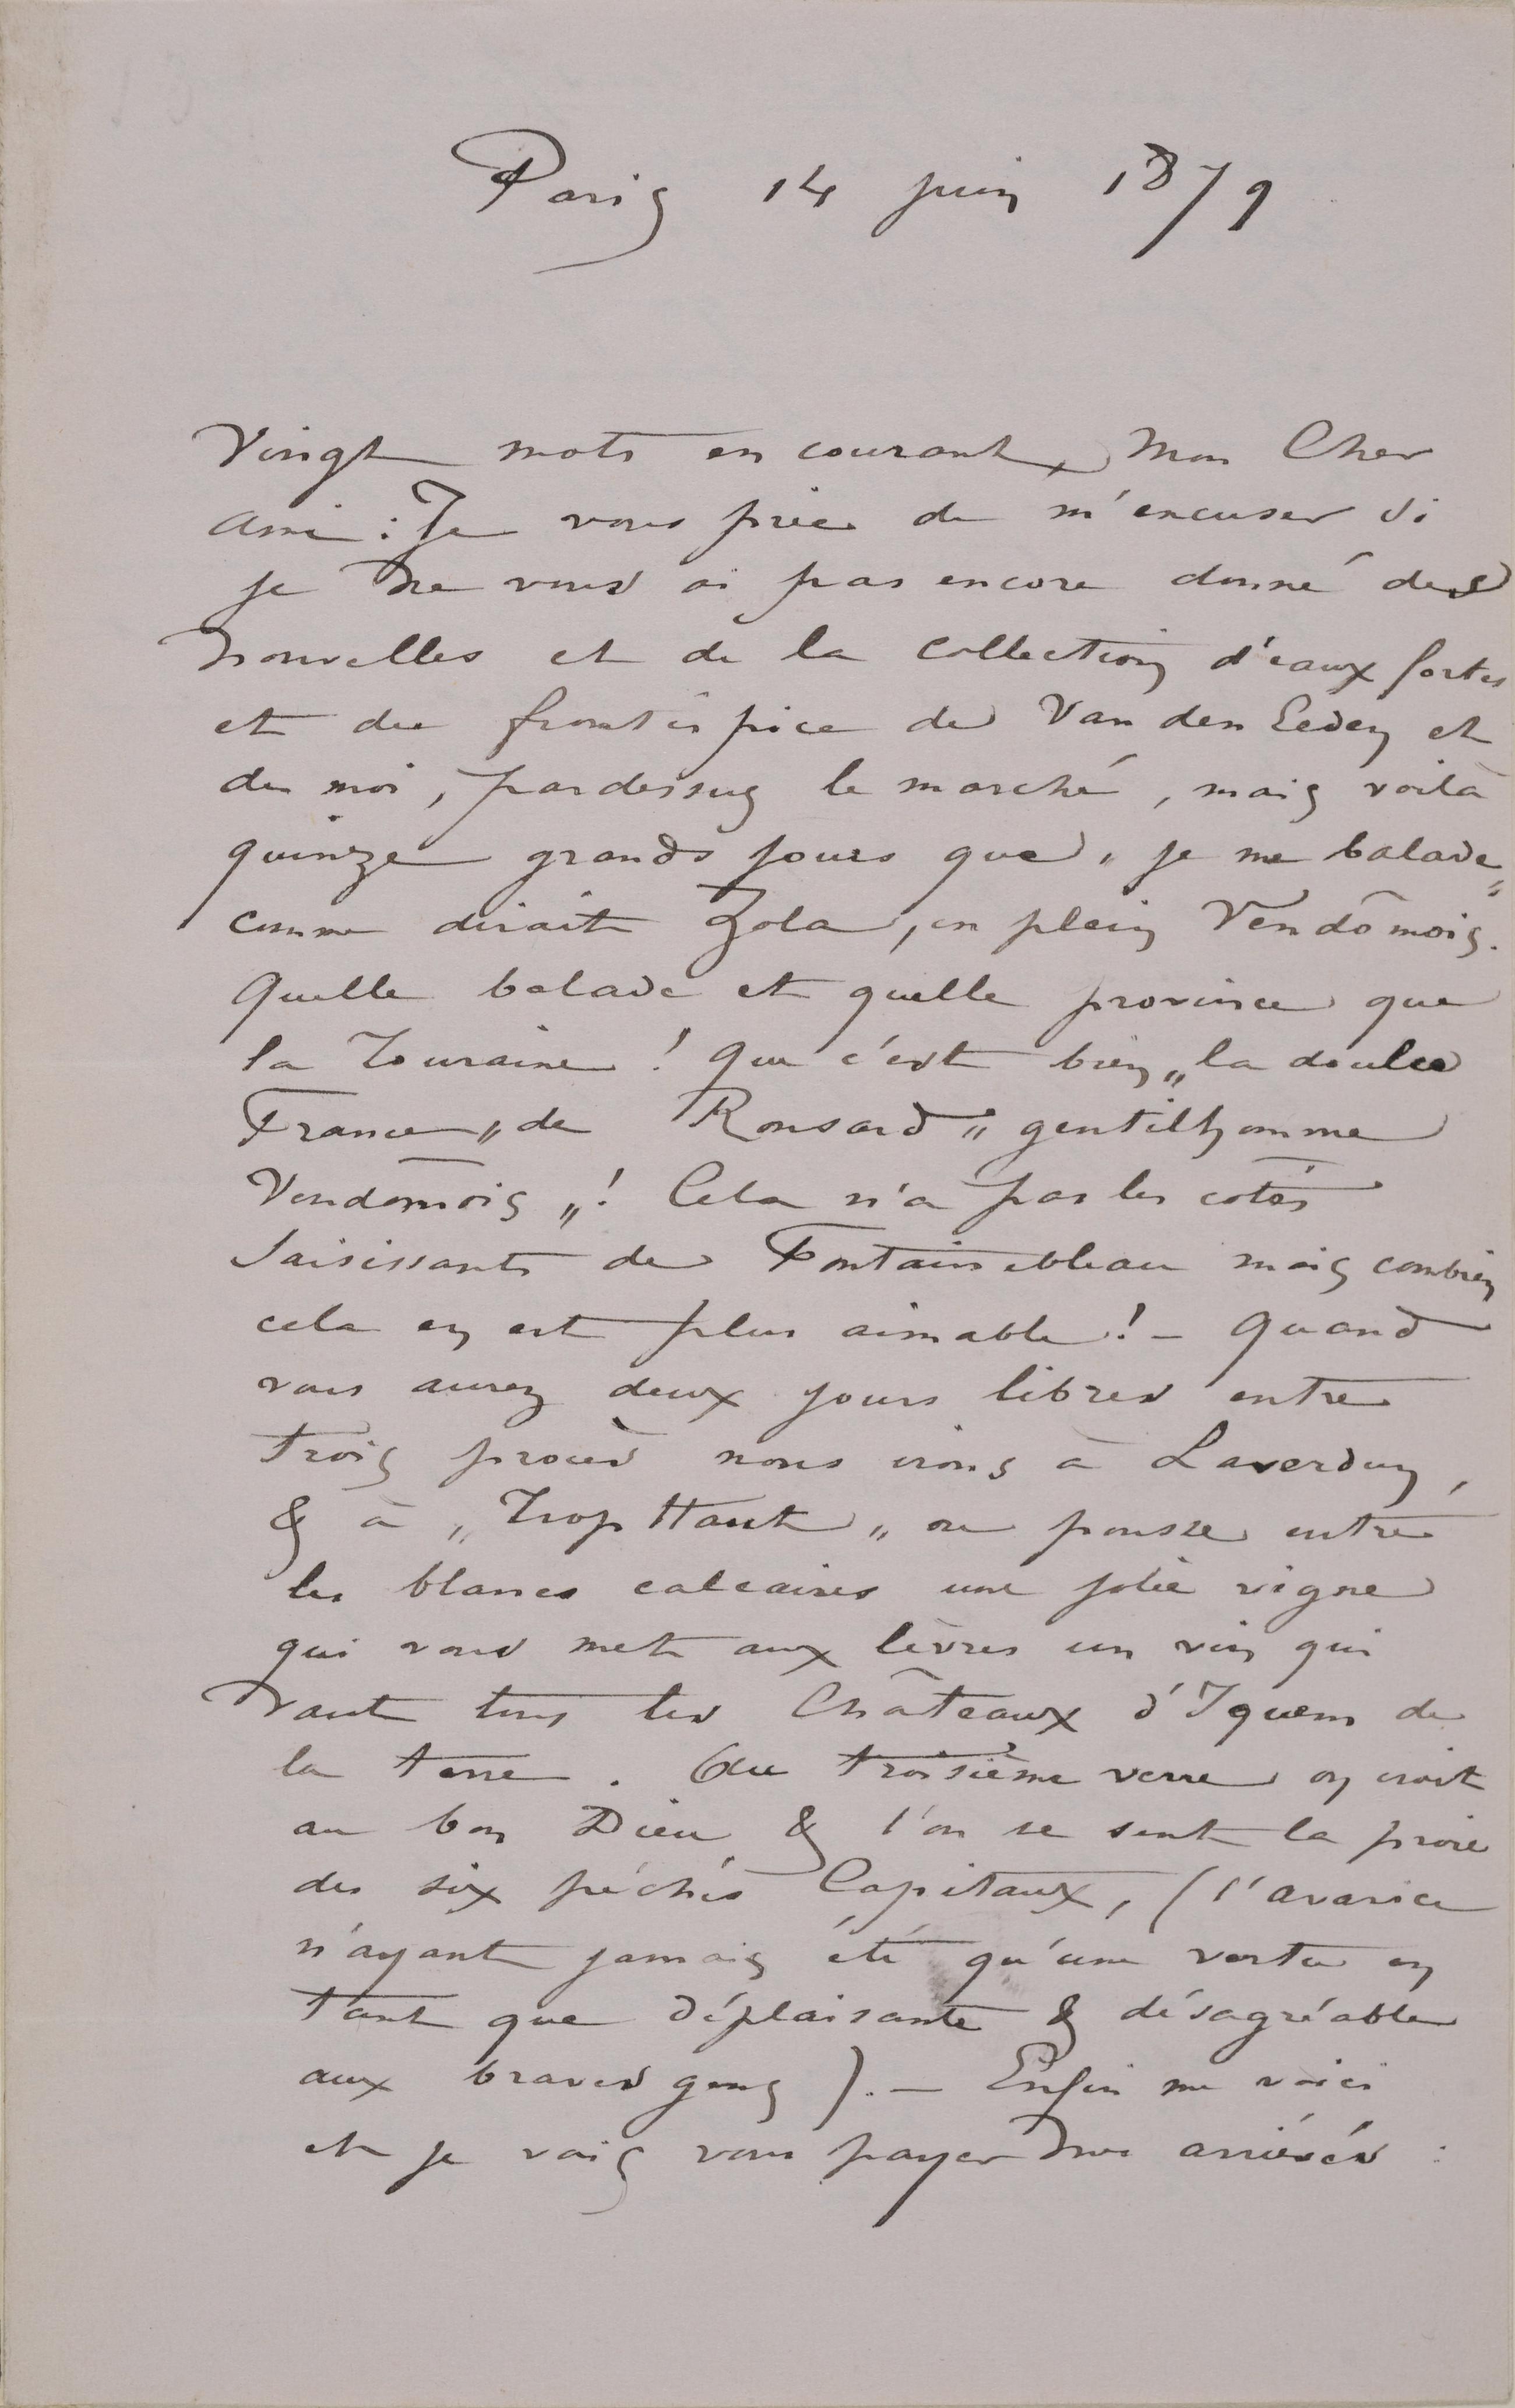 Paris 14 juin 1879
Vingt mots en courant, Mon Cher
Ami : Je vous prie de m'excuser si
je ne vous ai pas encore donné des
nouvelles et de la collection d'eaux fortes
et du frontispice de Van den Eeden et
de moi, pardessus le marché, mais voilà
quinze grands jours que „je me balade„
comme dirait Zola, en plein Vendômois.
Quelle balade et quelle province que
la Touraine ! Que c'est bien „la doulce
France„ de Ronsard „gentilhomme
Vendomois„! Cela n'a pas les cotés
saisissants de Fontainebleau mais combien
cela en est plus aimable ! – Quand
vous aurez deux jours libres entre
trois procès nous irons à Laverdun,
& à „Trop Haut„ ou pousse entre
les blancs calcaires une jolie vigne
qui vous met aux lèvres un vin qui
vaut tous les Châteaux d'Iquem de
la terre. Au troisième verre on croit
au bon Dieu & l'on se sent la proie
des six péchés Capitaux, (l'avarice
n'ayant jamais été qu'une vertu en
tant que déplaisante & désagréable
aux braves gens ). – Enfin me voici
et je vais vous payer mes arriérés :